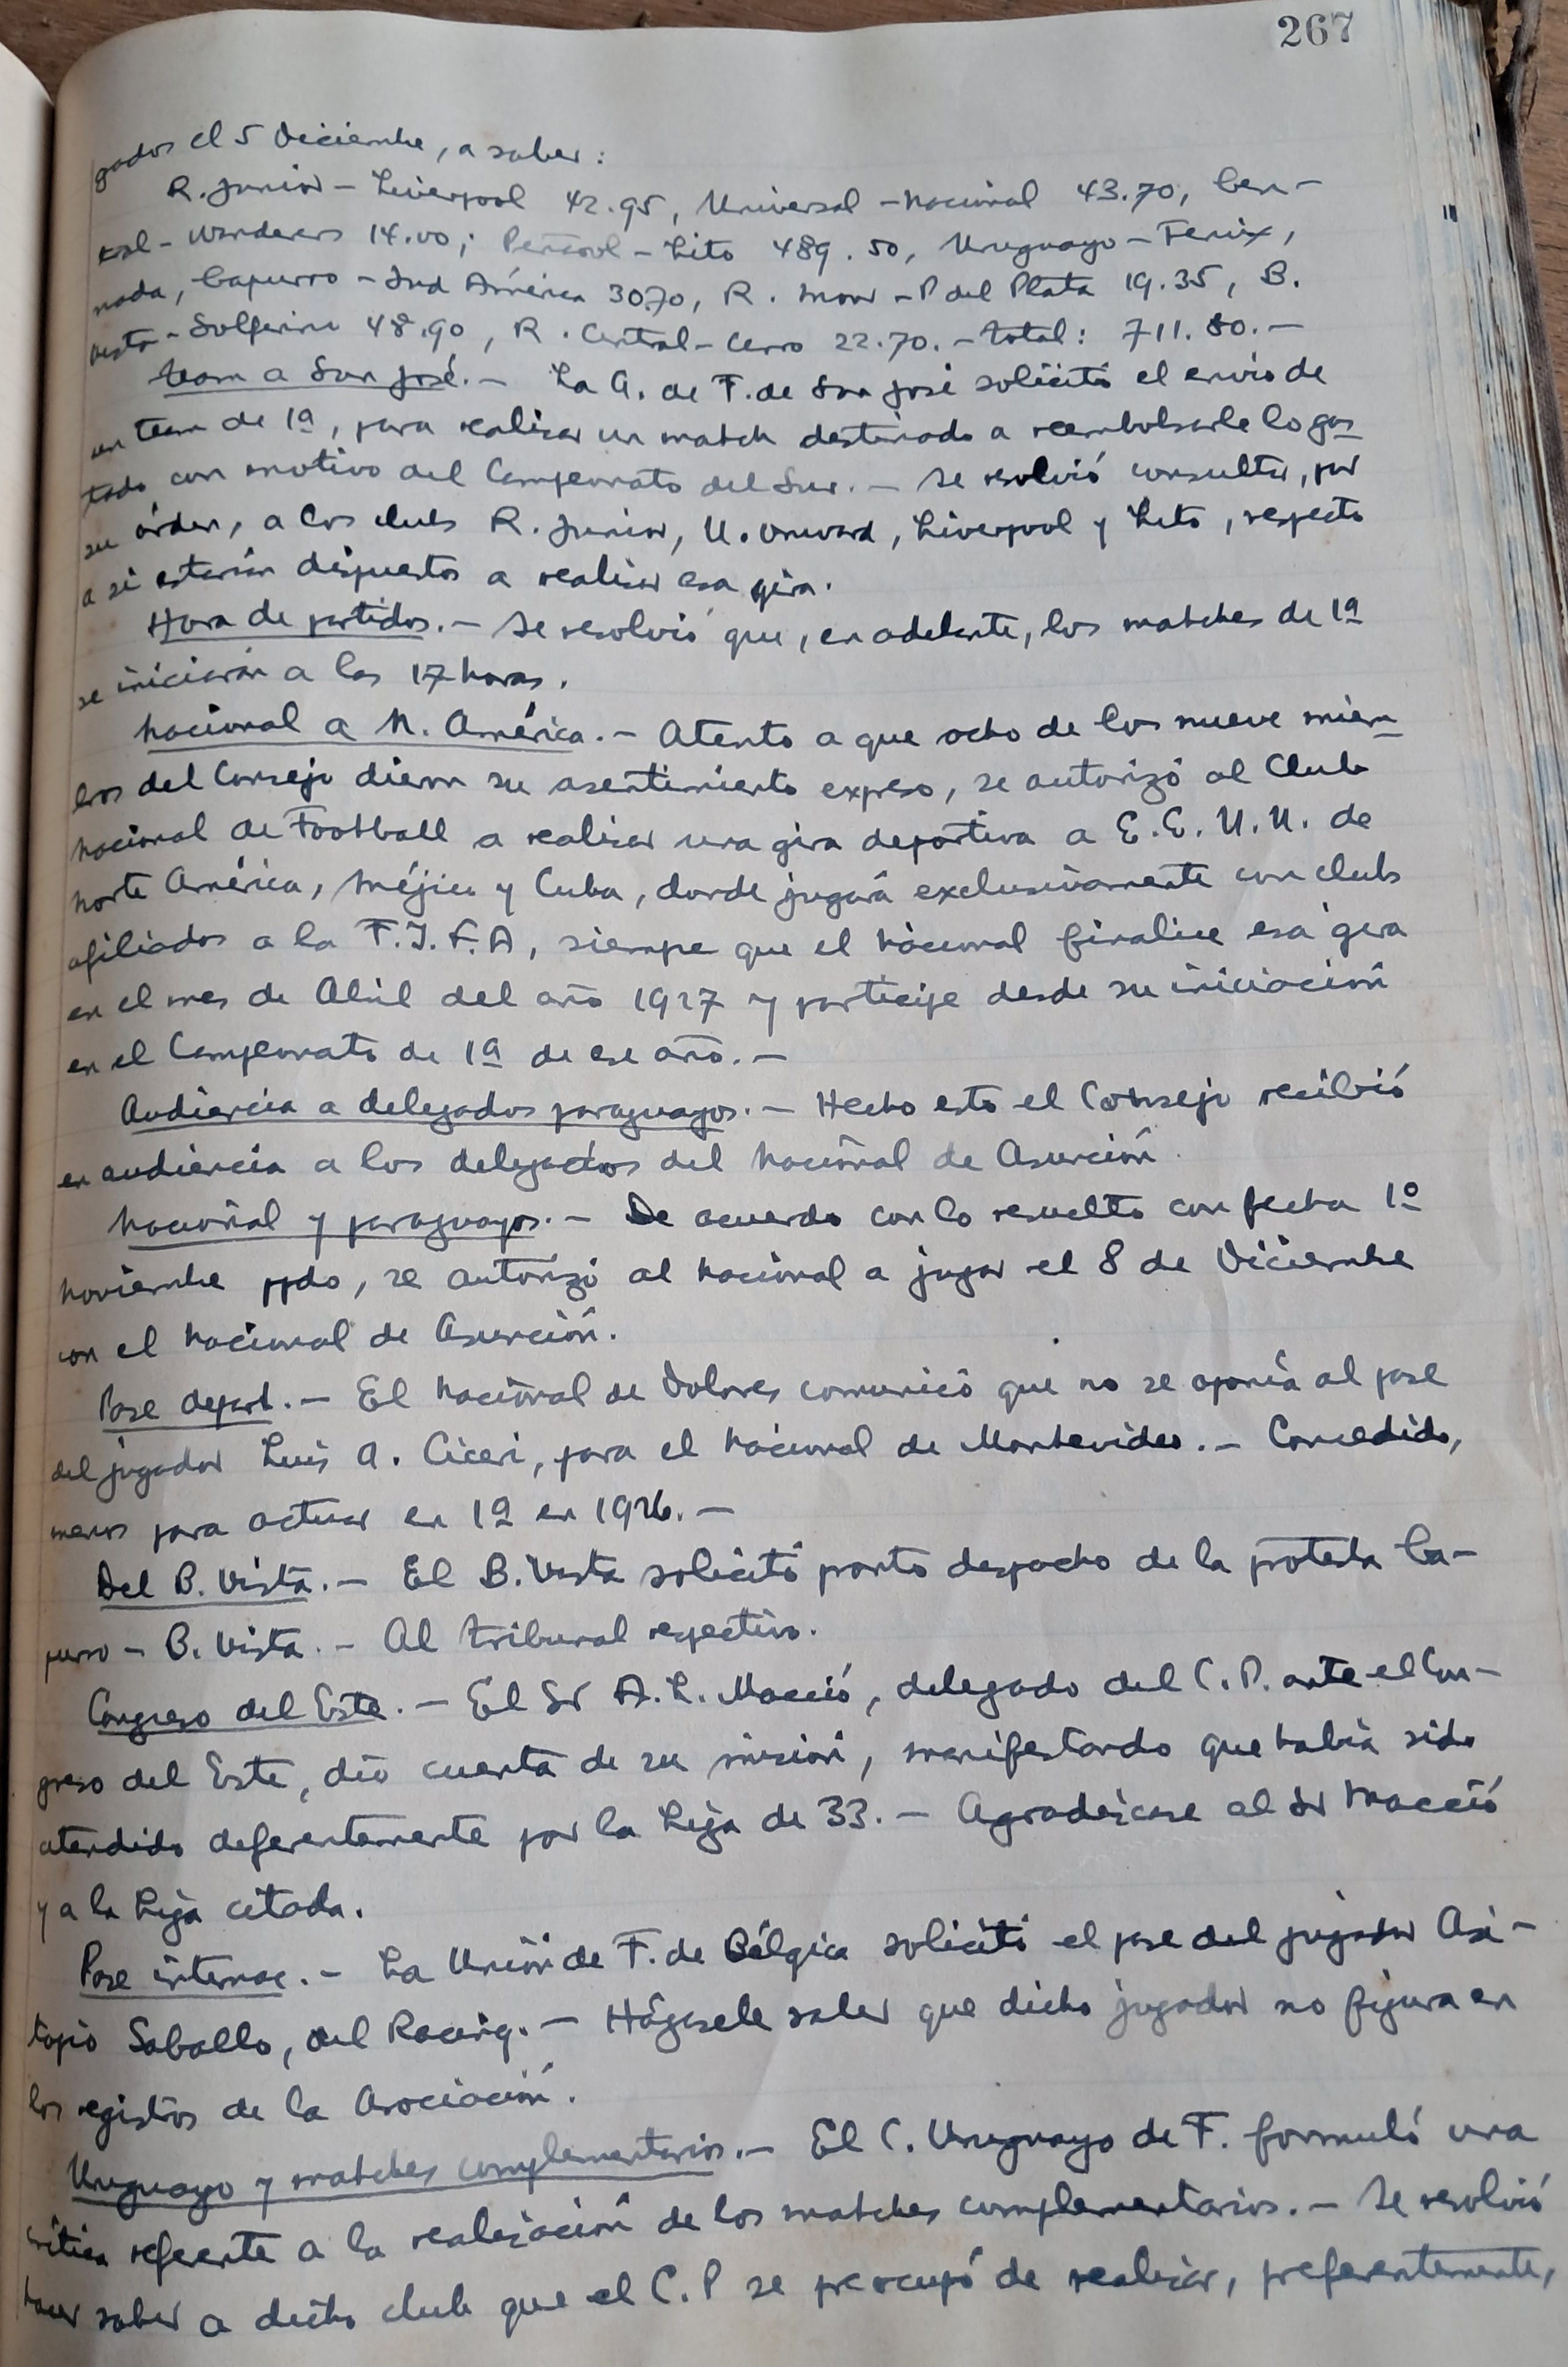 267
gados el 5 Diciembre, a saber:
R. Junior - Liverpool 42.95, Universal - Nacional 43.70, Cen-
tral - Wanderers 14.00; Peñarol - Lito 489.50, Uruguayo - Fenix,
nada, Capurro - Sud América 30.70, R. Mon - P del Plata 19.35, B.
Vista - Solferino 48.90, R. Central - Cerro 22.70. - Total: 711.80. -
Team a San José. - La A. de F. de San José solicitó el envío de
un team de 1ª, para realizar un match destinado a reembolsarle lo gas-
tado con motivo del Campeonato del Sur. - Se resolvió consultar, por
su órden, a los clubs R. Junior, U. Onward, Liverpool y Lito, respecto
a si estarían dispuestos a realizar esa gira.
Hora de partidos. - Se resolvió que, en adelante, los matches de 1ª
se iniciarán a las 17 horas.
Nacional a N. América. - Atento a que ocho de los nueve miem-
bros del Consejo dieron su asentimiento expreso, se autorizó al Club
Nacional de Football a realizar una gira deportiva a E.E.U.U. de
Norte América, Méjico y Cuba, donde jugará exclusivamente con clubs
afiliados a la F.I.F.A, siempre que el Nacional finalice esa gira
en el mes de Abril del año 1927 y participe desde su iniciación
en el Campeonato de 1ª de ese año. -
Audiencia a delegados paraguayos. - Hecho esto el Consejo recibió
en audiencia a los delegados del Nacional de Asunción.
Nacional y paraguayos. - De acuerdo con lo resuelto con fecha 1º
Noviembre ppdo, se autorizó al Nacional a jugar el 8 de Diciembre
con el Nacional de Asunción.
Pase depart. - El Nacional de Dolores comunicó que no se oponía al pase
del jugador Luis A. Ciceri, para el Nacional de Montevideo. - Concedido,
menos para actuar en 1ª en 1926. -
Del B. Vista. - El B. Vista solicitó pronto despacho de la protesta Ca-
purro - B. Vista. - Al Tribunal respectivo.
Congreso del Este. - El Sr A. L. Macció, delegado del C. P. ante el Con-
greso del Este, dió cuenta de su misión, manifestando que había sido
atendido deferentemente por la Liga de 33. - Agradézcase al Sr Macció
y a la Liga citada.
Pase internac. - La Unión de F. de Bélgica solicitó el pase del jugador
Saballo, del Racing. - Hágasele saber que dicho jugador no figura en
los registros de la Asociación.
Uruguayo y matches complementarios. - El C. Uruguayo de F. formuló una
crítica referente a la realización de los matches complementarios. - Se resolvió
hacer saber a dicho club que el C. P se preocupó de realizar, preferentemente,